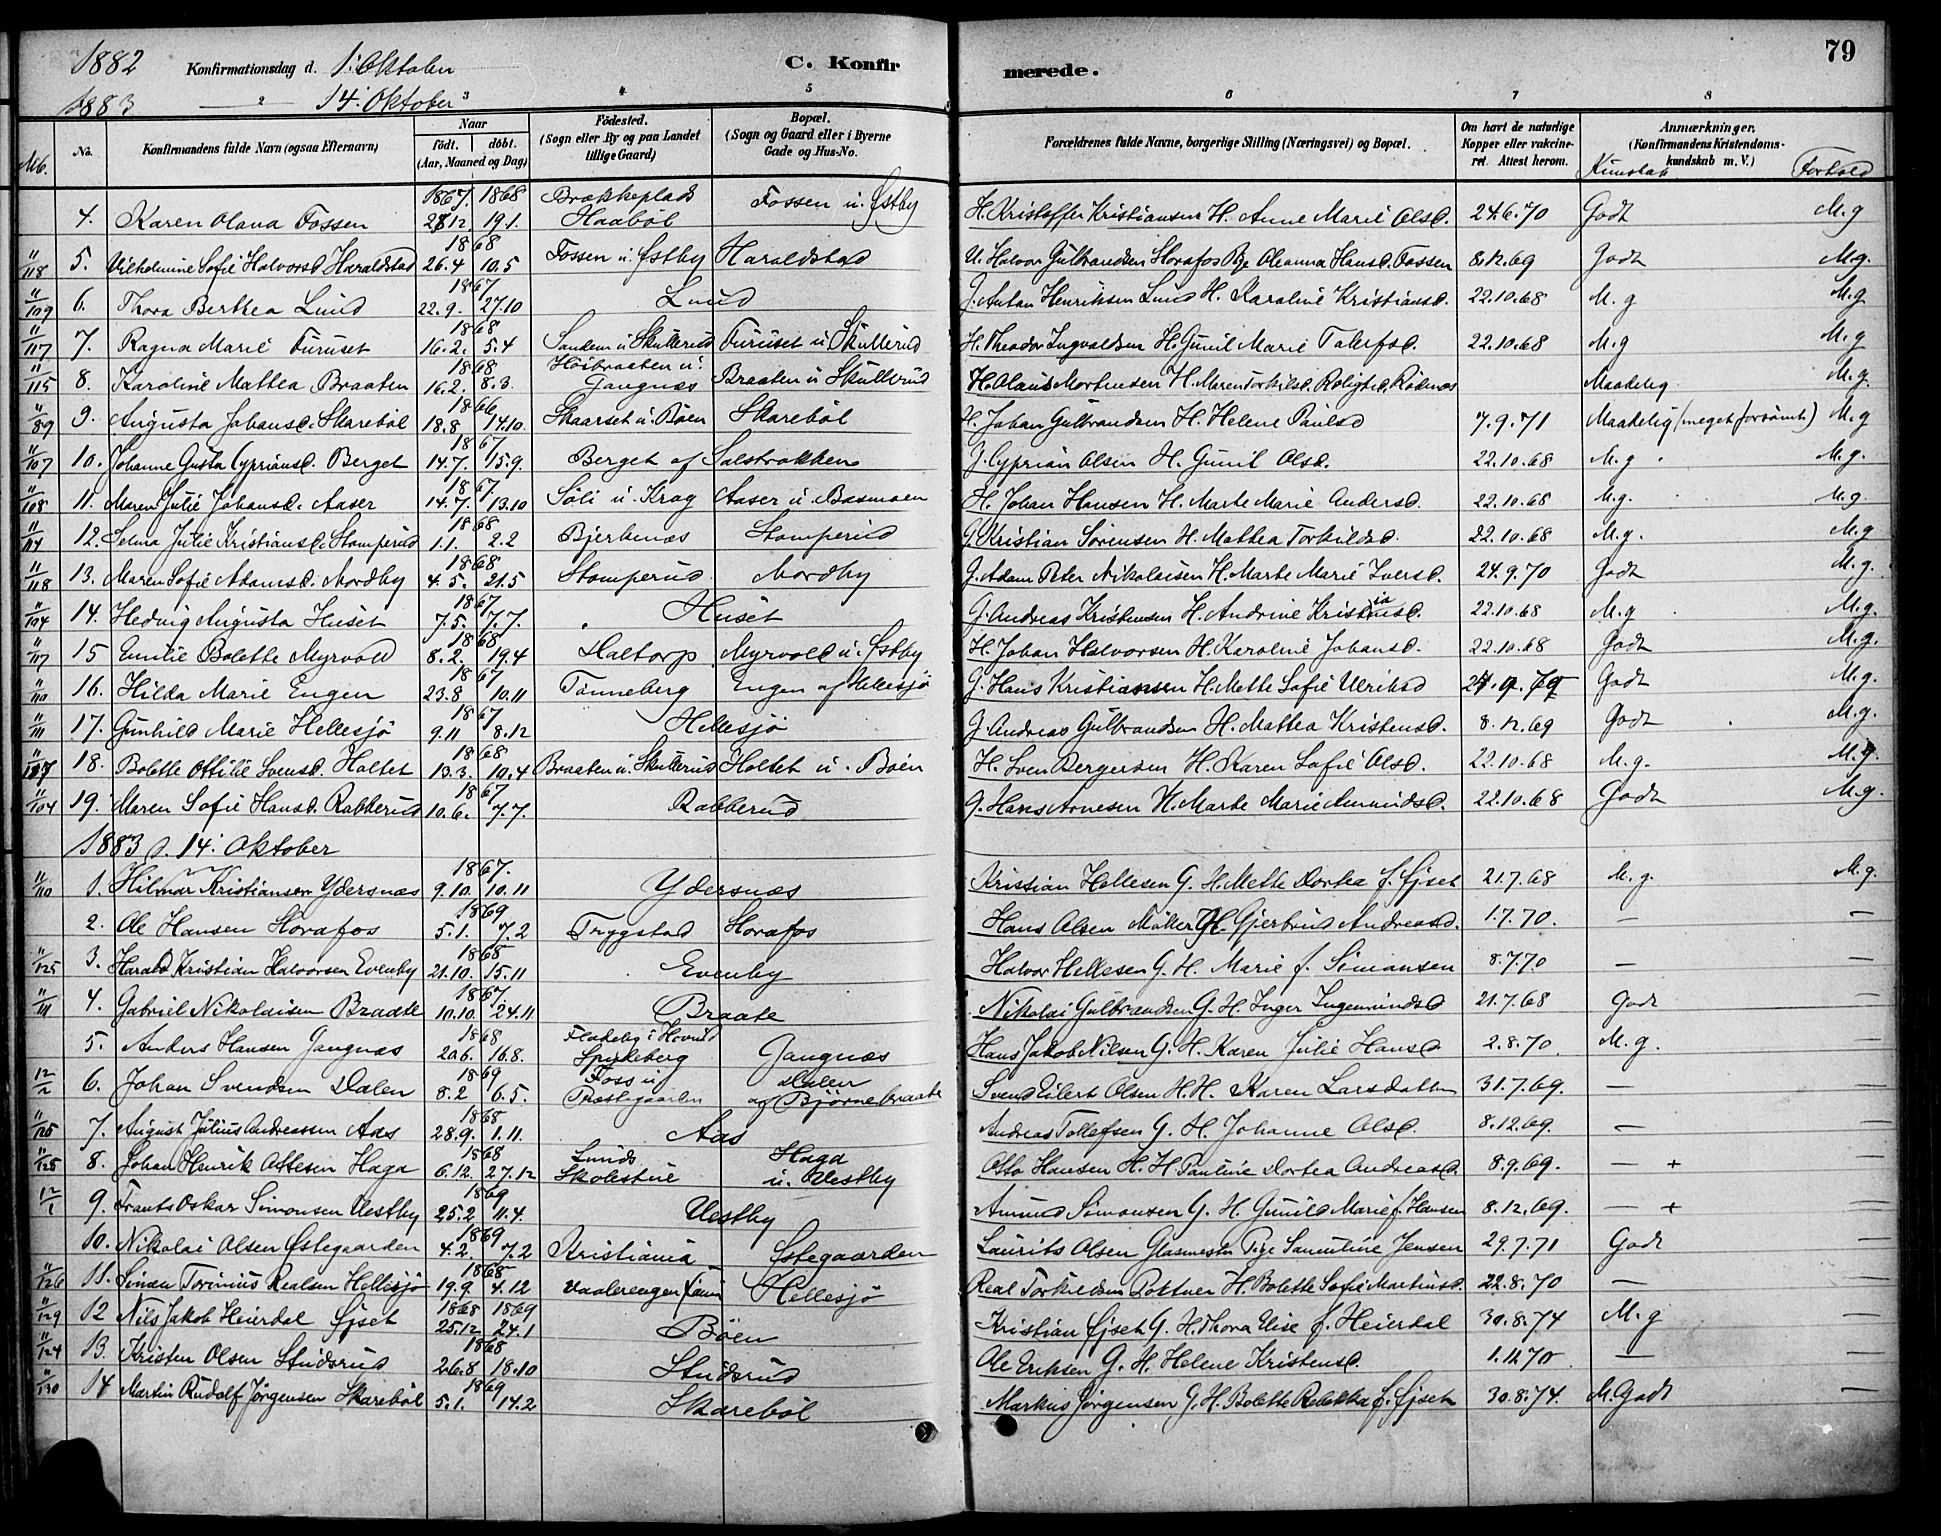 1882 Konfirmationsdag d. 1. Oktober C. Konfirmerede. 79
1883 — " — 14. Oktober
2 3 4 5 6 7 8
No. Konfirmandens fulde Navn (ogsaa Efternavn) Naar født. døbt. (Aar, Maaned og Dag) Fødested. (Sogn eller By og paa Landet tillige Gaard) Bopæl. (Sogn og Gaard eller i Byerne Gade og Hus-No. Forældrenes fulde Navne, borgerlige Stilling (Næringsvei) og Bopæl. Om havt de naturlige Kopper eller vakcineret. Attest herom. Anmærkninger, (Konfirmandens Kristendomskundskab m. V.) Kunskab Forhold
1867 1868 Brækkeplads
4. Karen Olava Fossen 28.12. 19.1. Haabøl Fossen u. Østby H. Kristoffer Kristiansen H. Anne Marie Olsd. 24.6.70 Godt M.g
1868
11/118 5. Vilhelmine Sofie Halvorsd. Haraldstad 26.4 10.5 Fossen u. Østby Haraldstad U. Halvor Gulbrandsen Horafos Pige Oleanna Hansd. Fossen 8.12.69 Godt M.g.
1867
11/109 6. Thora Berthea Lund 22.9. 27.10 Lund G. Anton Henriksen Lund H. Karoline Kristiansd. 22.10.68 M.g M.g
1868
11/117 7. Ragna Marie Furuset 16.2. 5.4 Sandem u. Skullerud Furuset u. Skullerud H. Theodor Ingvaldsen H. Gunil Marie Tolefsd. 22.10.68 M.g M.g
1868 Høibraaten u.
11/115 8. Karoline Mattea Braaten 16.2. 8.3. Gangnæs Braaten u. Skullerud H. Olaus Mortensen H. Maren Torkilsd. Roligh. Rødenæs Maadelig M.g.
1866
11/89 9. Augusta Johansd. Skarebøl 18.8 14.10. Skaarset u. Bøen Skarebøl H. Johan Gulbrandsen H. Helene Paulsd 7.9.71 Maadelig (meget forsømt) M.g
1867
11/107 10. Johanne Gusta Cypriansd. Berget 14.7. 15.9. Berget af Solstrokken G. Cyprian Olsen H. Gunil Olsd. 22.10.68 M.g M.g.
1867
11/108 11. Maren Julie Johansd. Aaser 14.7. 13.10 Søli u. Krog Aaser u. Basmoen H. Johan Hansen H. Marte Marie Andersd. 22.10.68 M.g. M.g.
1868
11/114 12. Selma Julie Kristiansd. Stomperud 1.1. 2.2 Bjerkenæs Stomperud G. Kristian Sørensen H. Mattea Torkildsd. 22.10.68 M.g. M.g
1868
11/118 13. Maren Sofie Adamsd. Nordby 4.5. 21.5 Stomperud Nordby G. Adam Peter Nikolaisen H. Marte Marie Iversd. 24.9.70 Godt M.g.
1867
11/104 14. Hedvig Augusta Huset 7.5. 7.7. Huset G. Andreas Kristensen H. Andrine Kristiansd. 22.10.68 M.g M.g.
1868
11/117 15 Emilie Bolette Myrvold 8.2. 19.4 Haltorp Myrvold u. Østby H. Johan Halvorsen H. Karoline Johansd. 22.10.68 Godt M.g.
1867
11/110 16. Hilda Marie Engen 23.8 10.11 Tønneberg Engen af Hellesjø G. Hans Kristiansen H. Mette Sofie Ulriksd Godt M.g.
1867
11/111 17. Gunhild Marie Hellesjø 9.11 8.12 Hellesjø G. Andreas Gulbrandsen H. Mattea Kristensd. 8.12.69 Godt M.g.
1868
11/117 18. Bolette Ottilie Svensd. Holtet 13.3. 10.4 Braaten u. Skullerud Holtet u. Bøen H. Sven Bergersen H. Karen Sofie Olsd. 22.10.68 M.g. M.g.
1867
11/104 19. Maren Sofie Hansd. Rakkerud 10.6. 7.7. Rakkerud G. Hans Arnesen H. Marte Marie Amundsd. 22.10.68 Godt M.g.
1883 d. 14. Oktober
1867.
11/110 1. Hilmar Kristiansen Ydersnæs 9.10. 10.11 Ydersnæs Kristian Hellesen G. H. Mette Dortea f. Ejset 21.7.68 M.g. M.g.
1869
2. Ole Hansen Horafos 5.1. 7.2 Trygstad Horafos Hans Olsen Møller H. Gjertrud Andreasd. 1.7.70. — —
1868
11/125 3. Harald Kristian Halvorsen Evenby 21.10. 15.11 Evenby Halvor Hellesen G. H. Marie f. Simansen 8.7.70 — —
1867.
11/111 4. Gabriel Nikolaisen Braate 10.10. 24.11 Braate Nikolai Gulbrandsen G. H. Inger Ingemundsd 21.7.68 Godt —
1868
5. Anders Hansen Gangnæs 20.6. 16.8. Spydeberg Gangnæs Hans Jakob Nilsen G. H. Karen Julie Hansd 2.8.70. M.g. —
1869 Foss u.
12/2 6. Johan Svendsen Dalen 8.2 6.5. Præstegaarden Dalen af Bjørnebraate Svend Eilert Olsen H. H. Karen Larsdatter 31.7.69. — —
1868
11/125 7. August Julius Andreassen Aas 28.9. 1.11. Aas Andreas Tollefsen G. H. Johanne Olsd. 8.12.69. — —
1868
11/128 8. Johan Henrik Ottesen Haga 6.12. 27.12 Lunds Skolestue Haga u. Vestby Otto Hansen H. H. Pauline Dortea Andreasd. 8.9.69. — + —
1869
12/1 9. Frants Oskar Simonsen Vestby 25.2 11.4. Vestby Amund Simonsen G. H. Gunild Marie f. Hansen 8.12.69. — + —
1869
10. Nikolai Olsen Østegaarden 4.2. 7.2 Kristiania Østegaarden Laurits Olsen Glasmester Pige Samuline Jensen 29.7.71 Godt —
1868
11/126 11. Simen Torinius Realsen Hellesjø 19.9. 4.12 Vaalerengen Hellesjø Real Torkildsen Pottner H. Bolette Sofie Martinsd. 22.8.70 — —
1868 1869
11/129 12 Nils Jakob Heierdal Ejset 25.12. 24.1 Bøen Kristian Ejset G. H. Thora Elise f. Heierdal 30.8.74 M.g —
1868
11/124 13. Kristen Olsen Studsrud 26.8 18.10 Studsrud Ole Eriksen G. H. Helene Kristensd. — —
1869
11/130 14 Martin Rudolf Jørgensen Skarebøl 5.1. 14.2 Skarebøl Markus Jørgensen G. H. Bolette Rebekka f. Ejset 30.8.74. M.Godt —